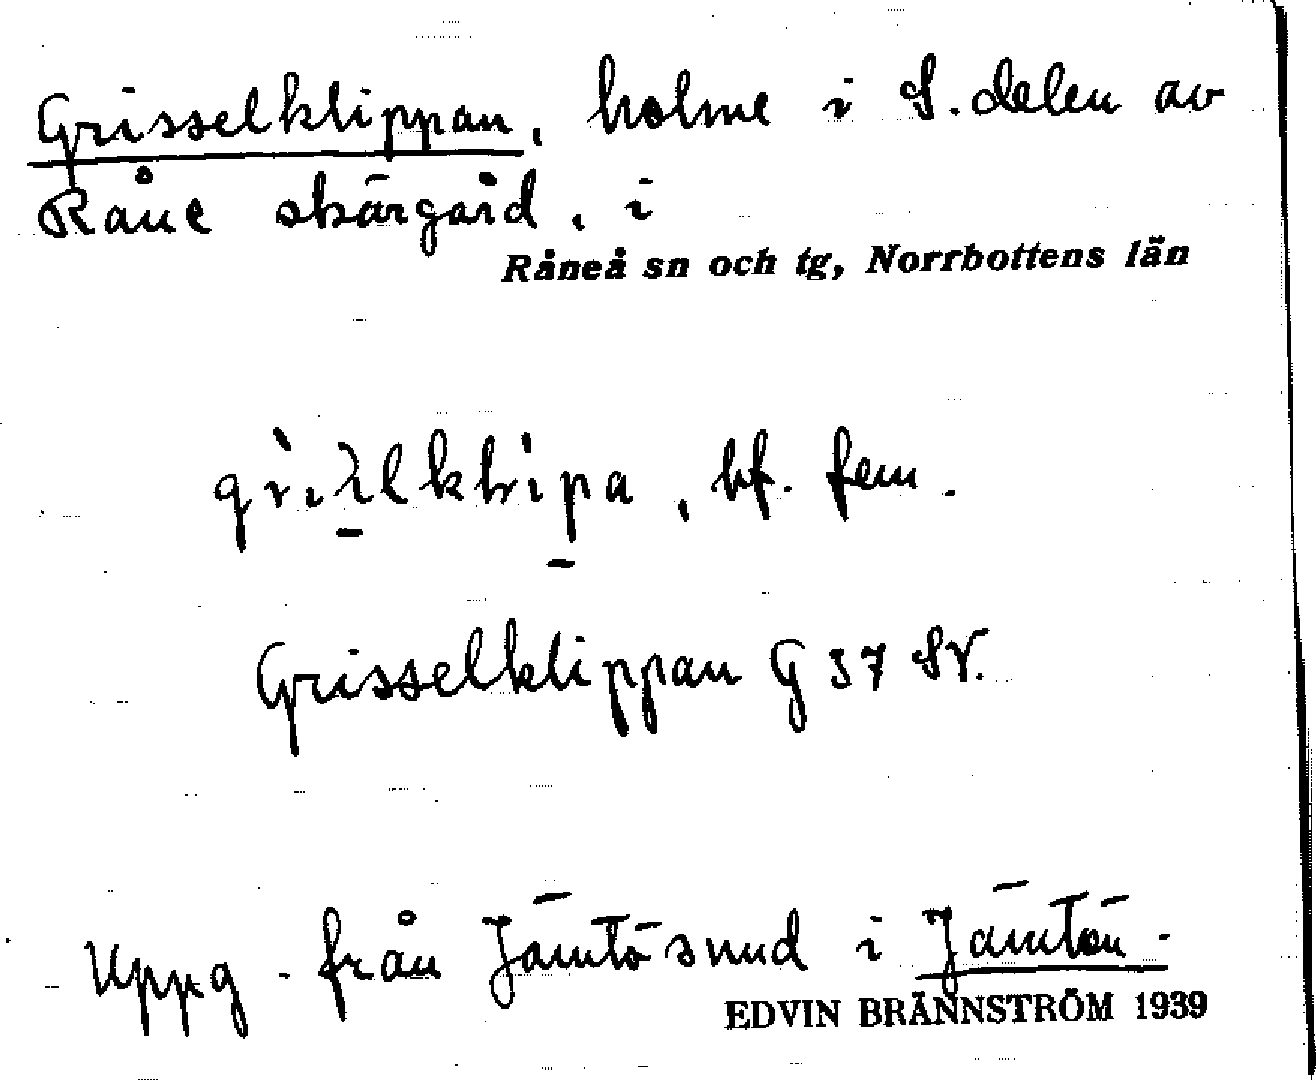 Grisselklippan, holme i S. delen av
Råne skärgård, i
Råneå sn och tg, Norrbottens län
bf. fem.
Grisselklippan G 37 SV.
Uppg. från Jämtösund i Jämtön.
EDVIN BRÄNNSTRÖM 1939